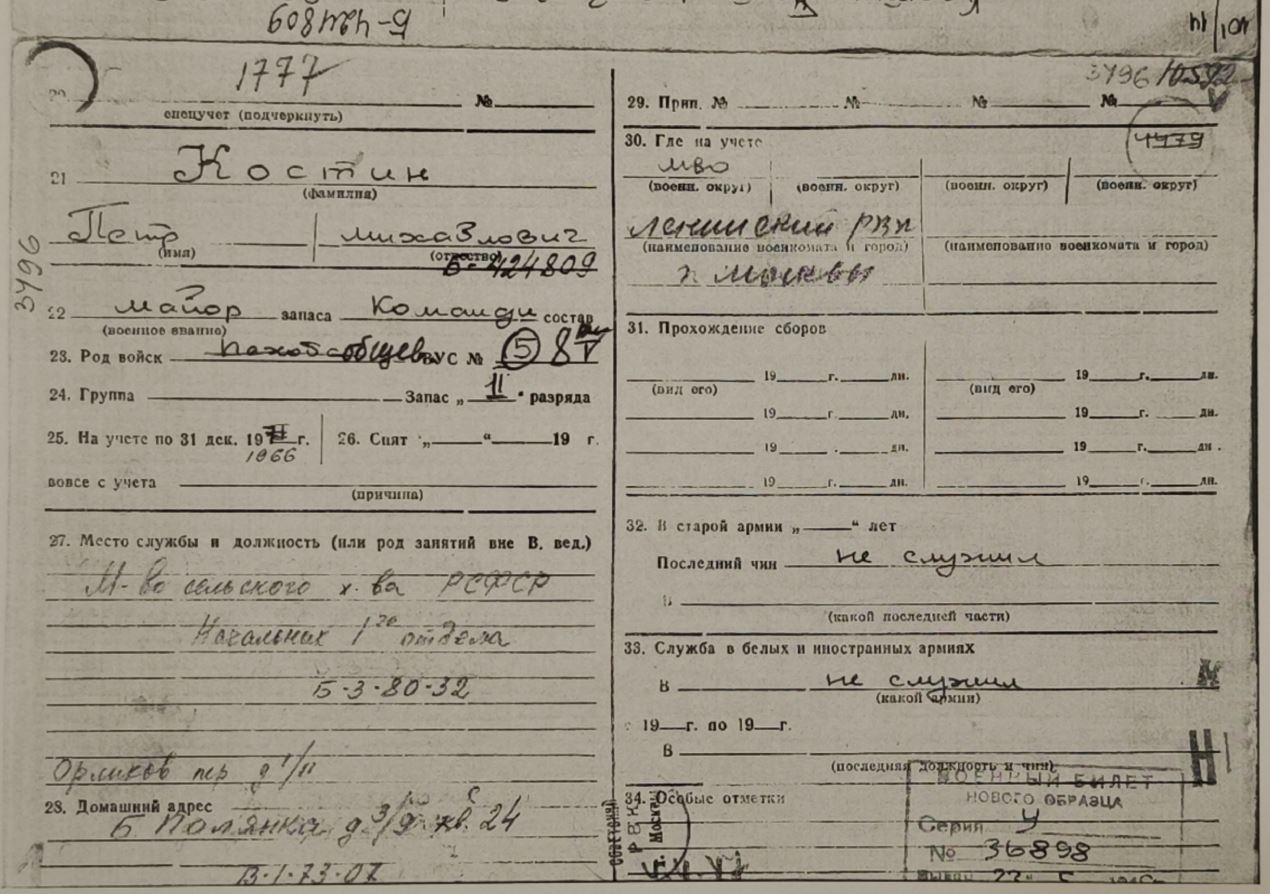 Б-424809
1777
№
спецучет (подчеркнуть)
21 Костин
(фамилия)
Петр Михайлович
(имя) (отчество)
Б-424809
3796
22 майор запаса Команди состав
(военное звание)
23. Род войск общев ВУС № 5 8
24. Группа Запас „ II " разряда
25. На учете по 31 дек. 19 г. 26. Снят „ “ 19 г.
1966
вовсе с учета
(причина)
27. Место службы и должность (или род занятий вне В. вед.)
М-во сельского х-ва РСФСР
Начальник 1го отдела
Б-3-80-32
Орликов пер д 1/11
28. Домашний адрес
Б Полянка д 3/9 кв. 24
В-1-73-07
3796 10592
29. Прип. № № № №
4479
30. Где на учете
МВО
(военн. округ) (военн. округ) (военн. округ) (военн. округ)
Ленинский РВК
(наименование военкомата и город) (наименование военкомата и город)
г. Москвы
31. Прохождение сборов
19 г. дн. 19 г. дн.
(вид его) (вид его)
19 г. дн. 19 г. дн.
19 . дн. 19 г. дн.
19 г. дн. 19 г. дн.
32. В старой армии „ “ лет
Последний чин не служил
В
(какой последней части)
33. Служба в белых и иностранных армиях
В не служил
(какой армии)
с 19 г. по 19 г.
В
(последняя должность и чин)
34. Особые отметки
СОВЕТСКИЙ
РВК
Москвы
ВОЕННЫЙ БИЛЕТ
НОВОГО ОБРАЗЦА
Серия У
№ 36898